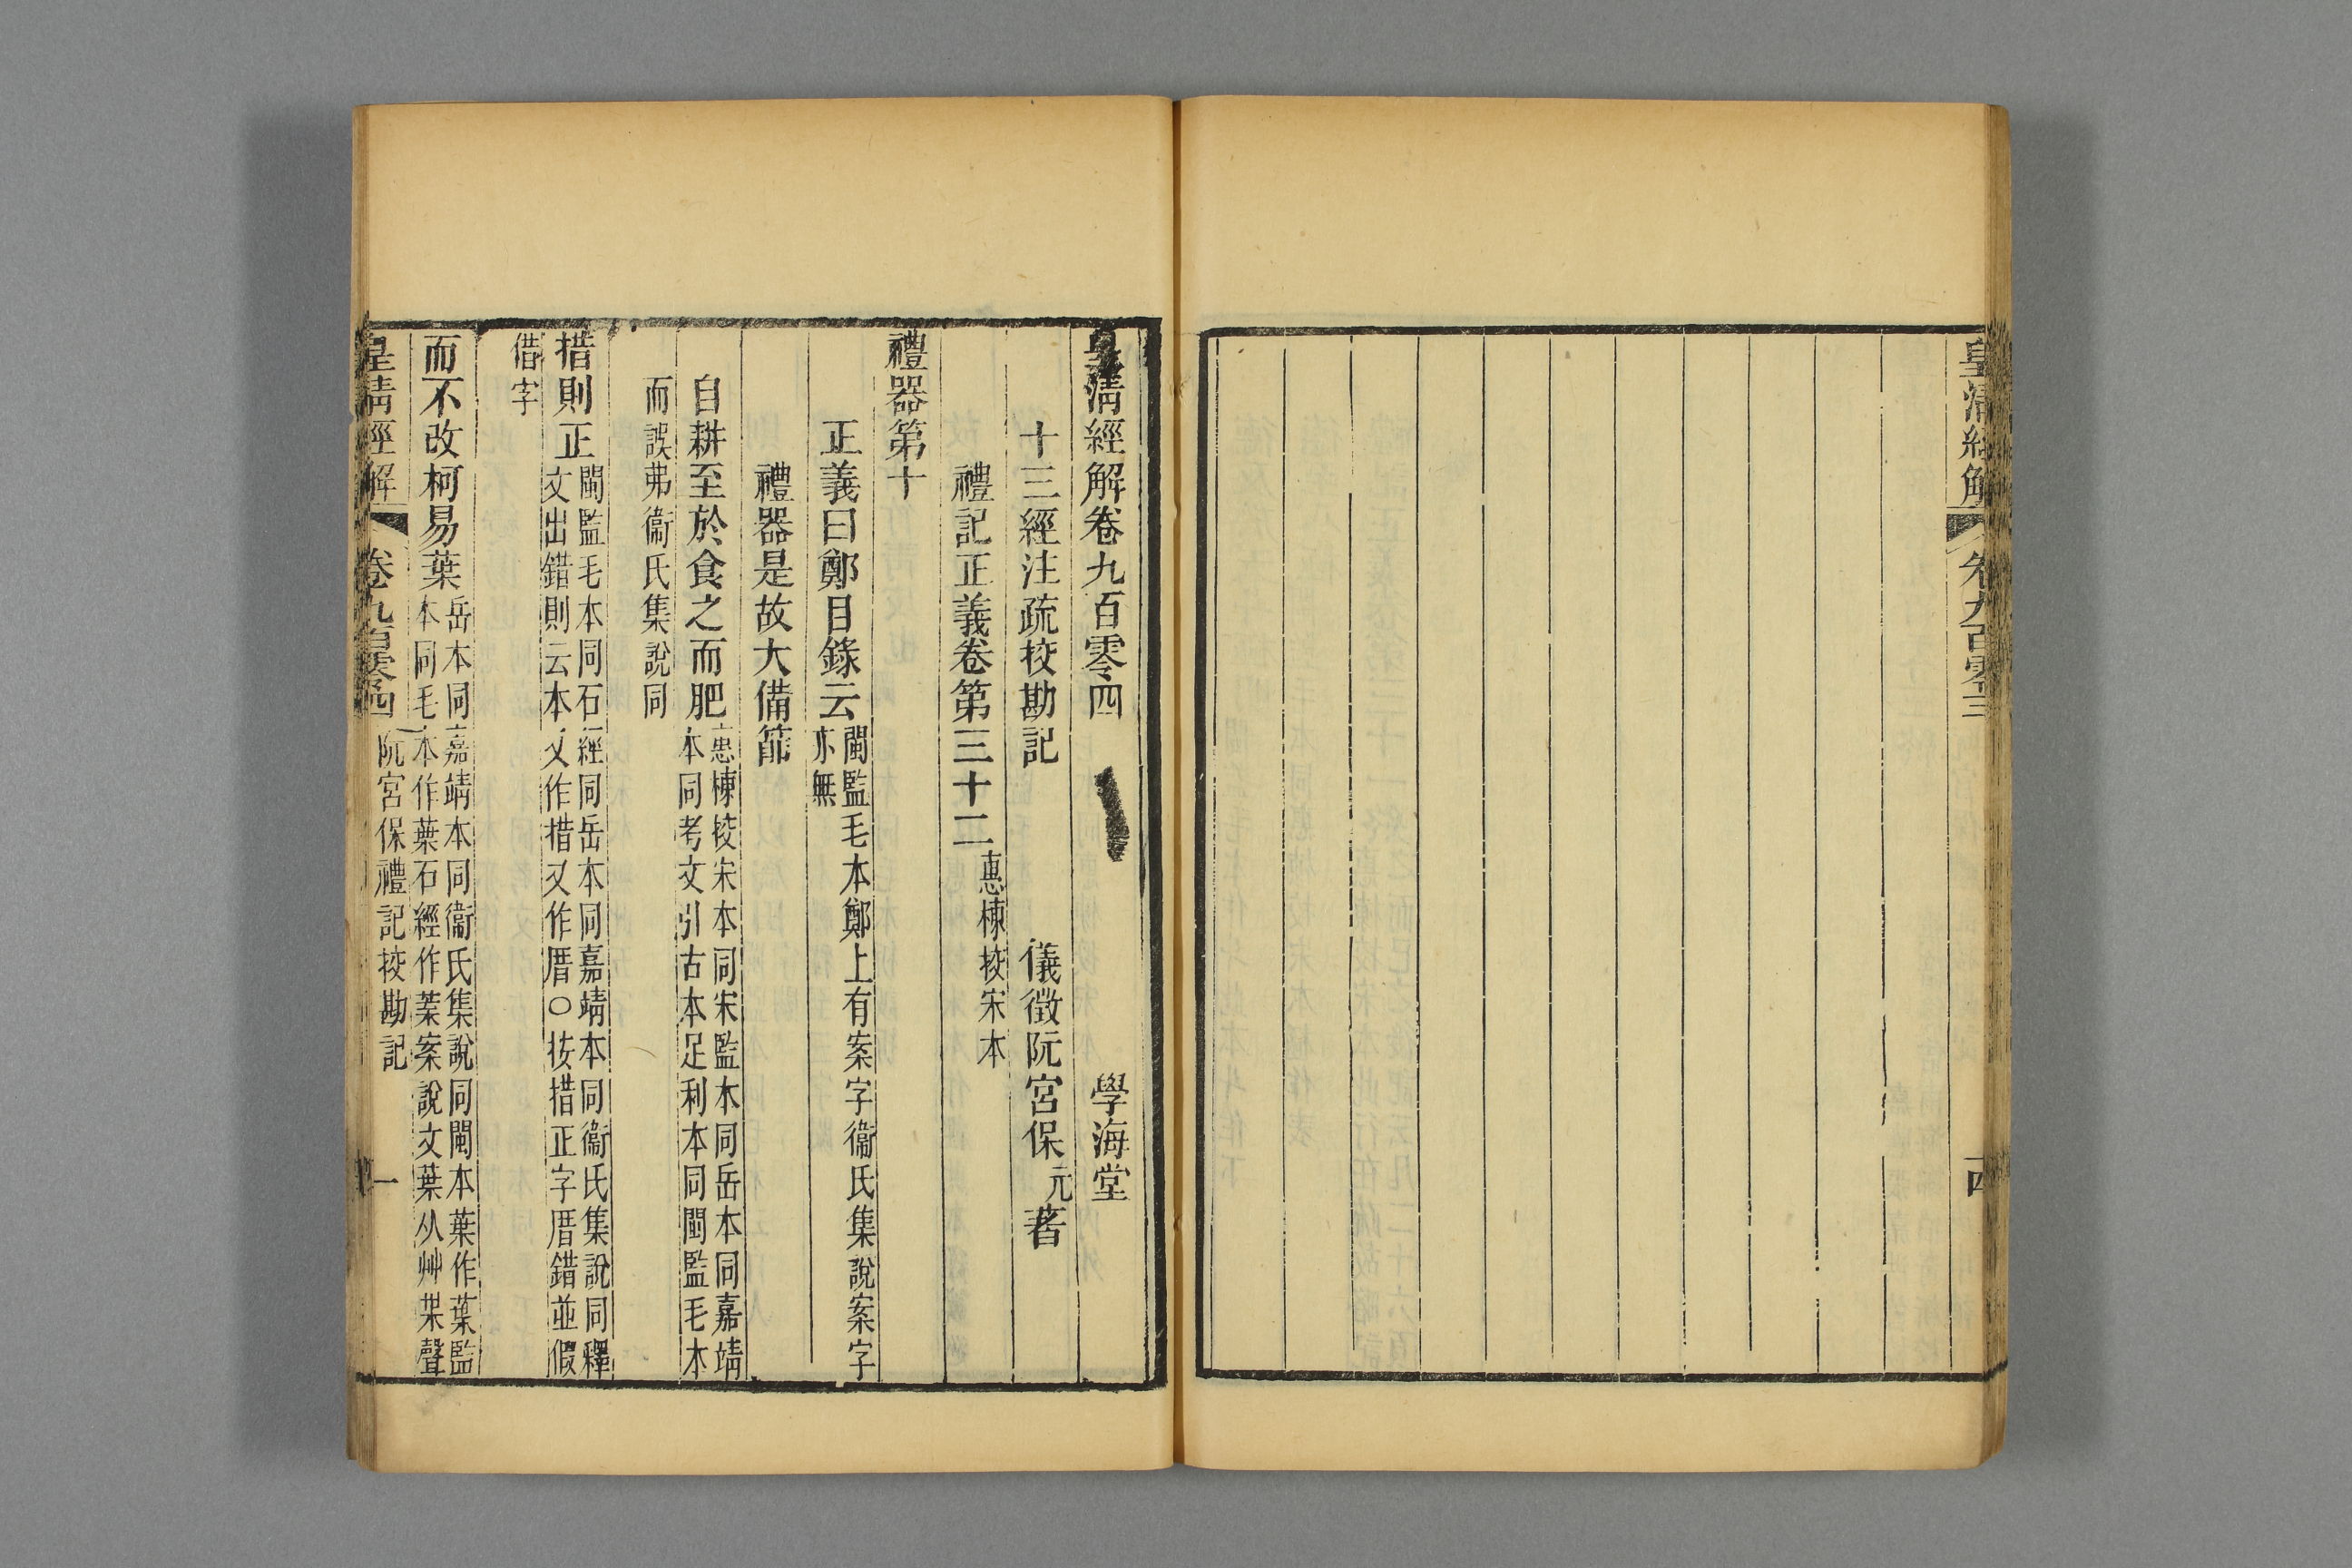 皇清經解
卷九百零三
四
皇清經解卷九百零四
學海堂
十三經注疏挍勘記
儀徵阮宮保元著
禮記正義卷第三十二惠棟挍宋本
禮器第十
正義曰鄭目錄云閩監毛本鄭上有案字衞氏集說案字
亦無
禮器是故大備節
自耕至於食之而肥惠棟挍宋本同宋監本同岳本同嘉靖
本同考文引古本足利本同閩監毛本
而誤弗衞氏集說同
措則正閩監毛本同石經同岳本同嘉靖本同衞氏集說同釋
文出錯則云本又作措又作厝○按措正字厝錯並假
借字
而不改柯易葉岳本同嘉靖本同衞氏集說同閩本葉作葉監
本同毛本作葉石經作䒶案說文葉从艸枼聲
皇清經解
卷九百零四
阮宮保禮記挍勘記
一